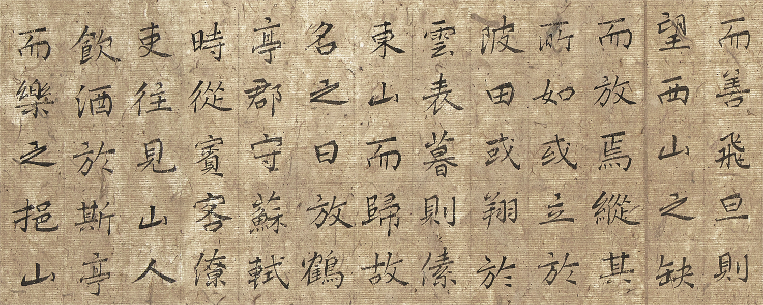 而善飛旦則
望西山之缺
而放焉縱其
所如或立於
陂田或翔於
雲表暮則傃
東山而歸故
名之曰放鶴
亭郡守蘇軾
時從賓客僚
吏往見山人
飲酒於斯亭
而樂之挹山